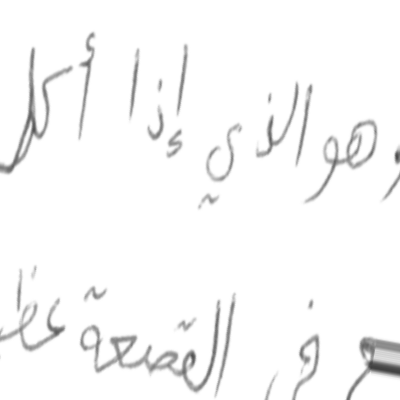 وهو الذي إذا أكل
في القصعة